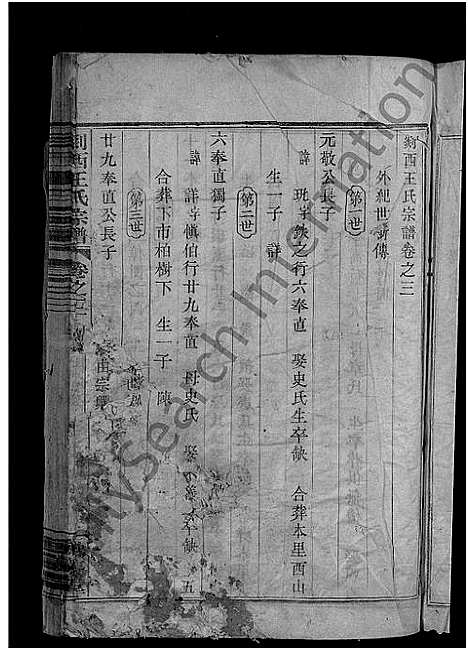 剡西王氏宗譜卷之三
外紀世系傳
第一世
元敬公長子
諱 珖字鉄之行六奉直 娶史氏生卒缺 合葬本里西山
生一子 詳
第二世
六奉直獨子
諱 詳字慎伯行廿九奉直 母史氏 娶 氏 卒缺
合葬下市柏樹下 生一子 陳
第三世
廿九奉直公長子
剡西王氏宗譜 卷之三
MySearch International